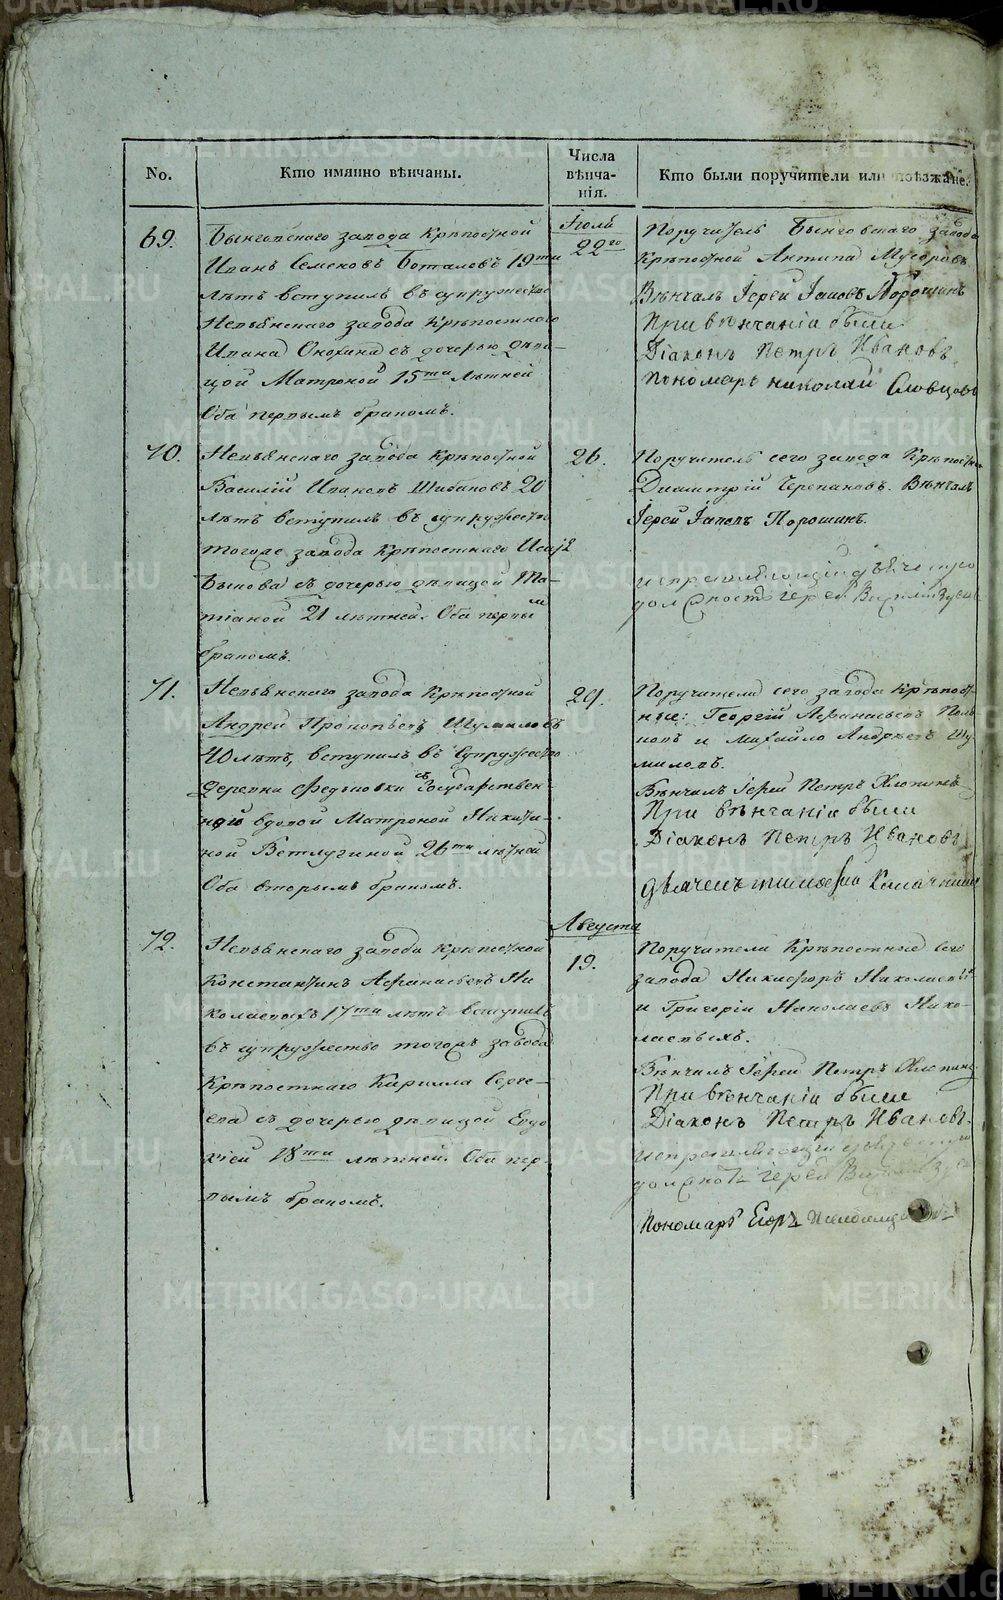 No.
Кто имянно вѣнчаны.
Числа
вѣнча-
нія.
Кто были поручители или поѣзжане.
69.
Бынговскаго завода Крѣпостной
Иванъ Семеновъ Боталовъ 19ти
лѣтъ вступилъ въ супружество
Невьянскаго завода Крѣпостнаго
Ивана Онохина съ дочерью дѣви-
цой Матроной 15ти лѣтней
Оба первымъ бракомъ.
Іюля
22го
Поручитель Бынговскаго завода
Крѣпостной Антипа Мусоровъ
Вѣнчалъ Іерей Іаковъ Порошинъ
При вѣнчаніи были
Діаконъ Петръ Ивановъ
пономарь николай Словцовъ
70.
Невьянскаго завода Крѣпостной
Василій Ивановъ Шибановъ 20
лѣтъ вступилъ въ супружество
тогоже завода Крѣпостнаго
Быкова съ дочерью дѣвицой Та-
тіаной 21 лѣтней. Оба первымъ
бракомъ.
26.
Поручитель сего завода Крѣпостной
Димитрій Черепановъ. Вѣнчалъ
Іерей Іаковъ Порошинъ.
Іерей
71.
Невьянскаго завода Крѣпостной
Андрей Прокопьевъ Шумиловъ
40 лѣтъ, вступилъ въ супружество
деревни Федьковки съ Государствен-
ной вдовой Матроной Никити-
ной Ветлугиной 26ти лѣтней
Оба вторымъ бракомъ.
29.
Поручители сего завода Крѣпост-
ные: Георгій Афанасьевъ
и Михайло Андреевъ Шу-
миловъ.
Вѣнчалъ Іерей Петръ Хлопинъ
При вѣнчаніи были
Діаконъ Петръ Ивановъ
дьячекъ тимофей
72.
Невьянскаго завода Крѣпостной
Константинъ Афанасьевъ Ни
колаевыхъ 17ти лѣтъ вступилъ
въ супружество тогожъ завода
Крѣпостнаго Кирилла Серге-
ева съ дочерью дѣвицой Евдо
кіей 18ти лѣтней. Оба пер
вымъ бракомъ.
Августа
19.
Поручители Крѣпостные сего
завода Никифоръ Николаевыхъ
и Григорій Николаевъ Нико-
лаевыхъ.
Вѣнчалъ Іерей Петръ Хлопинъ
При вѣнчаніи были
Діаконъ Петръ Ивановъ.
Іерей
Пономарь Егоръ
METRIKI.GASO-URAL.RU